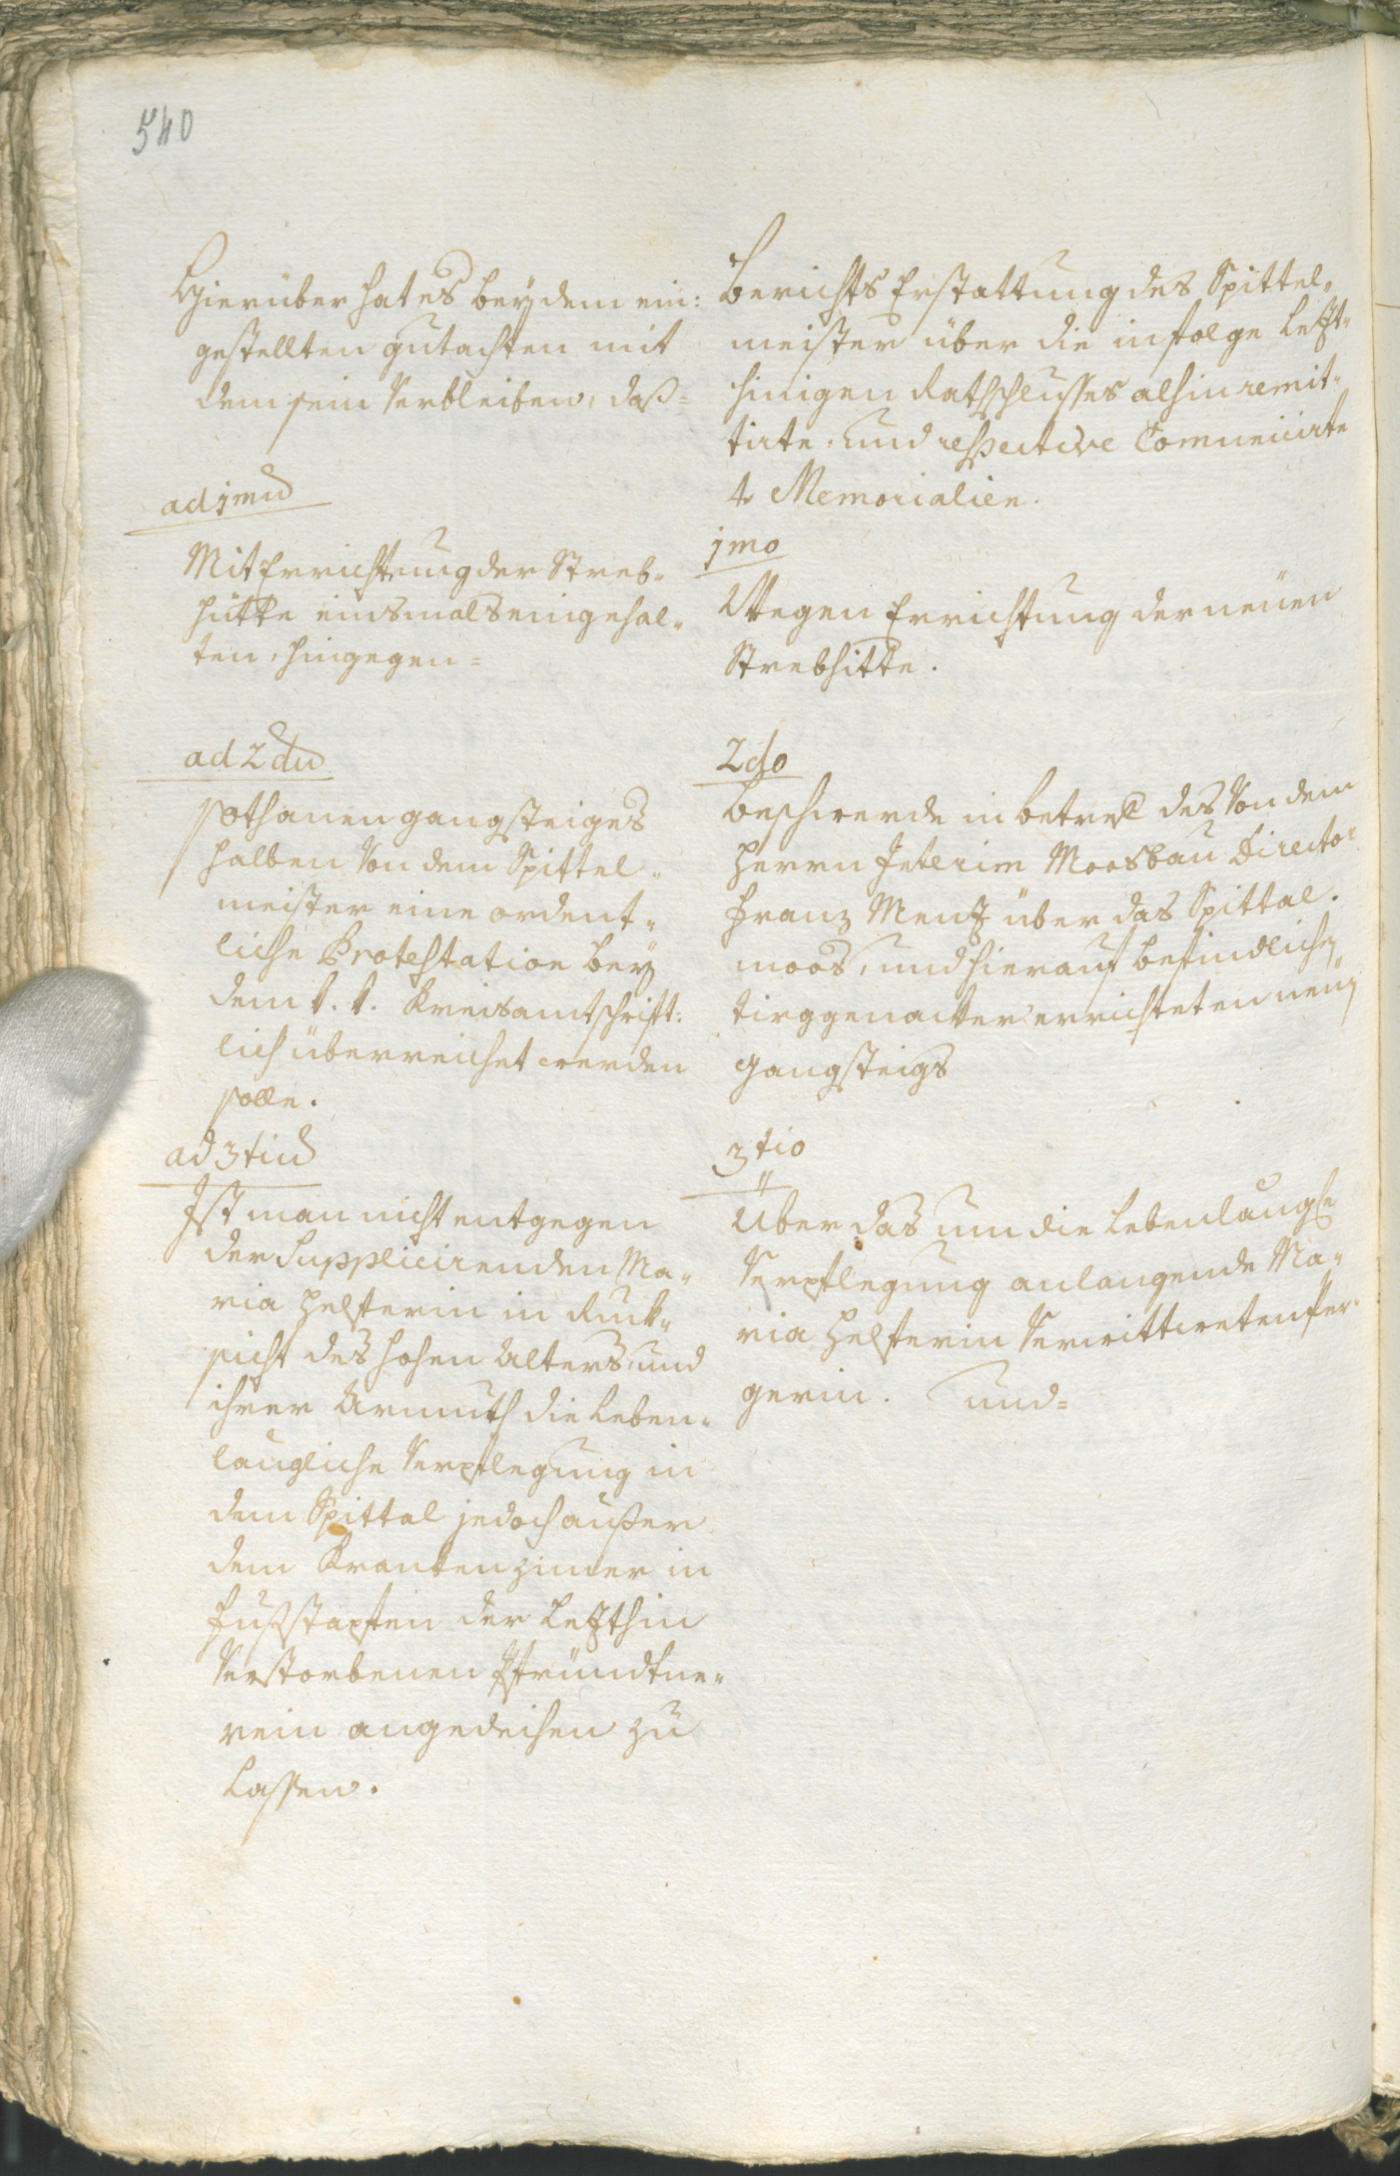 540
Hierüber hat es bey dem ein:
gestellten gutachten mit
dem sein Verbleiben, daß=
ad 1mum
Mit Errichtung der Streb„
hütte einsmals eingehal„
ten, hingegen=
ad 2dum
sothanen gangsteiges
halben Von dem Spittel„
meister eine ordent„
liche Protestation bey
dem k. k. Kreisamt schrift:
lich überreichet werden
solle.
ad 3tium
Ist man nicht entgegen
der Supplicirenden Ma„
ria Helfterin in Ruck„
sicht des hohen Alters, und
ihrer Armuth die Leben„
längliche Verpflegung in
dem Spittal jedoch außer
dem Krankenzimer in
fußstapfen der Letzthin
Verstorbenen Pfründtne„
rein angedeihen zu
Lassen.
Berichts Erstattung des Spittel„
meister über die infolge Letzt„
hinigen Rathschlusses alhin remit„
tirte, und respective Comunicirte
4 Memorialien.
1mo
Wegen Errichtung der neuen
Strebhitte.
2do
Beschwerde in betref des Von dem
Herrn Interim Moosbau Director
Franz Mentz über das Spittal„
moos, und hierauf befindlichen
tirggenacker errichteten neuen
gangsteigs
3tio
Über das um die Lebenlängle
Verpflegung anlangende Ma„
ria Helfterin Verwittwete
gerin. und=